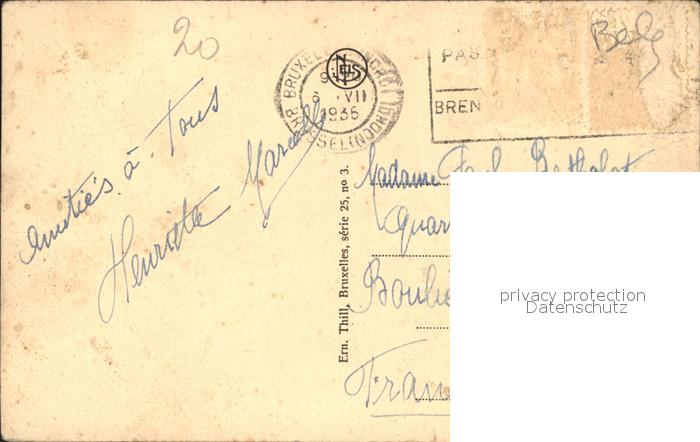 20
Belg
BRUXELLES (NORD)
NELS
6 VII
1936
BRUSSEL (NOORD)
PAS
BREN
Amitiés à Tous
Henriette Marcelle
Ern. Thill, Bruxelles, série 25, no 3.
Madame Paul Berthelot
Quar
Boulie
Fran
privacy protection
Datenschutz